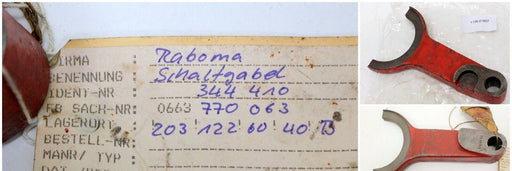 FIRMA : Raboma
BENENNUNG : Schaltgabel
IDENT-NR : 344 410
FB SACH-NR: 0663 770 063
LAGERORT : 203 122 60 40 B
BESTELL-NR:
MANR/ TYP :